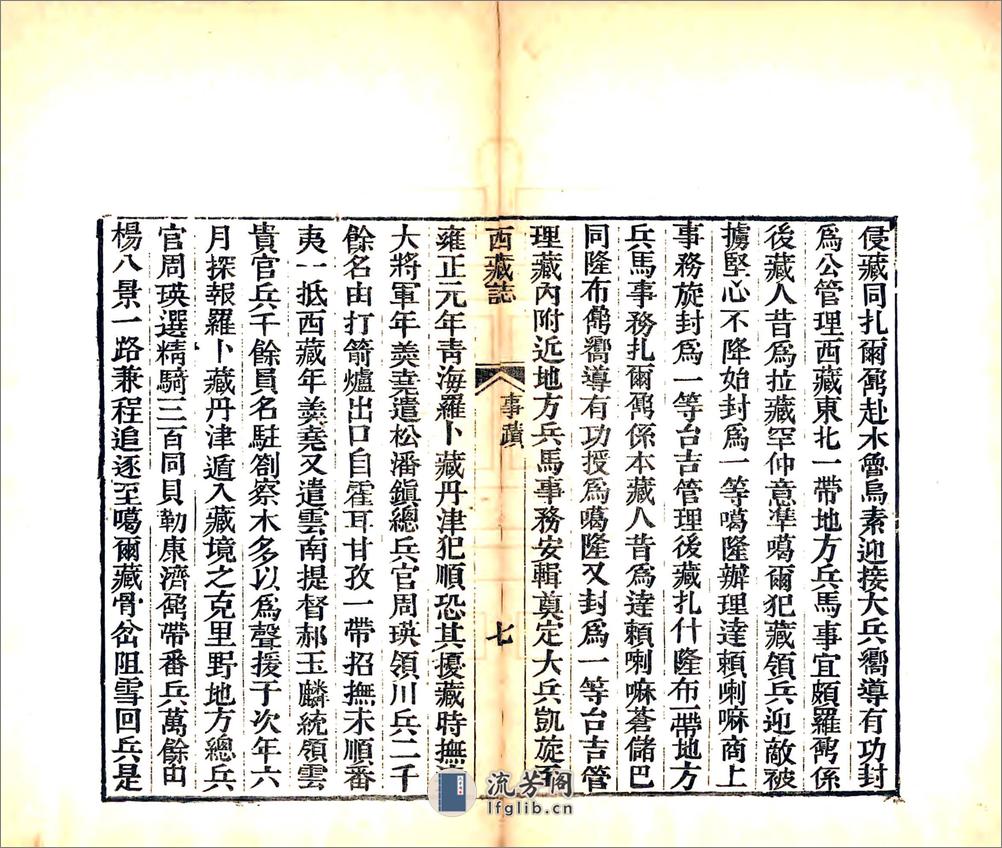 侵藏同扎爾鼐赴木魯烏素迎接大兵嚮導有功封
爲公管理西藏東北一帶地方兵馬事宜頗羅鼐係
後藏人昔爲拉藏罕仲意準噶爾犯藏領兵迎敵被
擄堅心不降始封爲一等噶隆辦理達賴喇嘛商上
事務旋封爲一等台吉管理後藏扎什隆布一帶地方
兵馬事務扎爾鼐係本藏人昔爲達賴喇嘛蒼儲巴
同隆布鼐嚮導有功授爲噶隆又封爲一等台吉管
理藏內附近地方兵馬事務安輯奠定大兵凱旋至
西藏誌
事蹟
七
雍正元年靑海羅卜藏丹津犯順恐其擾藏時撫
大將軍年羹堯遣松潘鎭總兵官周瑛領川兵二千
餘名由打箭爐出口自霍耳甘孜一帶招撫未順番
夷一抵西藏年羹堯又遣雲南提督郝玉麟統領雲
貴官兵千餘員名駐劄察木多以爲聲援于次年六
月探報羅卜藏丹津遁入藏境之克里野地方總兵
官周瑛選精騎三百同貝勒康濟鼐帶番兵萬餘由
楊八景一路兼程追逐至噶爾藏骨岔阻雪回兵是
流芳阁
lfglib.cn